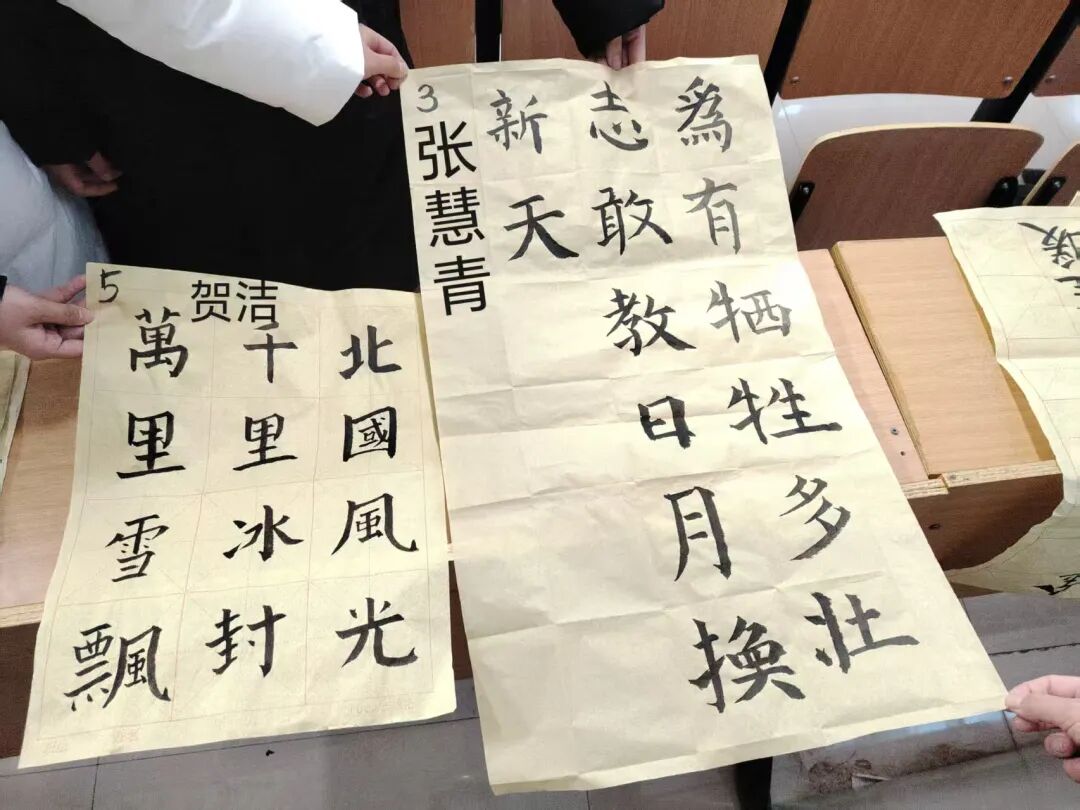 5
贺洁
北國風光
千里冰封
萬里雪飄
3
张慧青
爲有牺牲多壮
志敢教日月換
新天